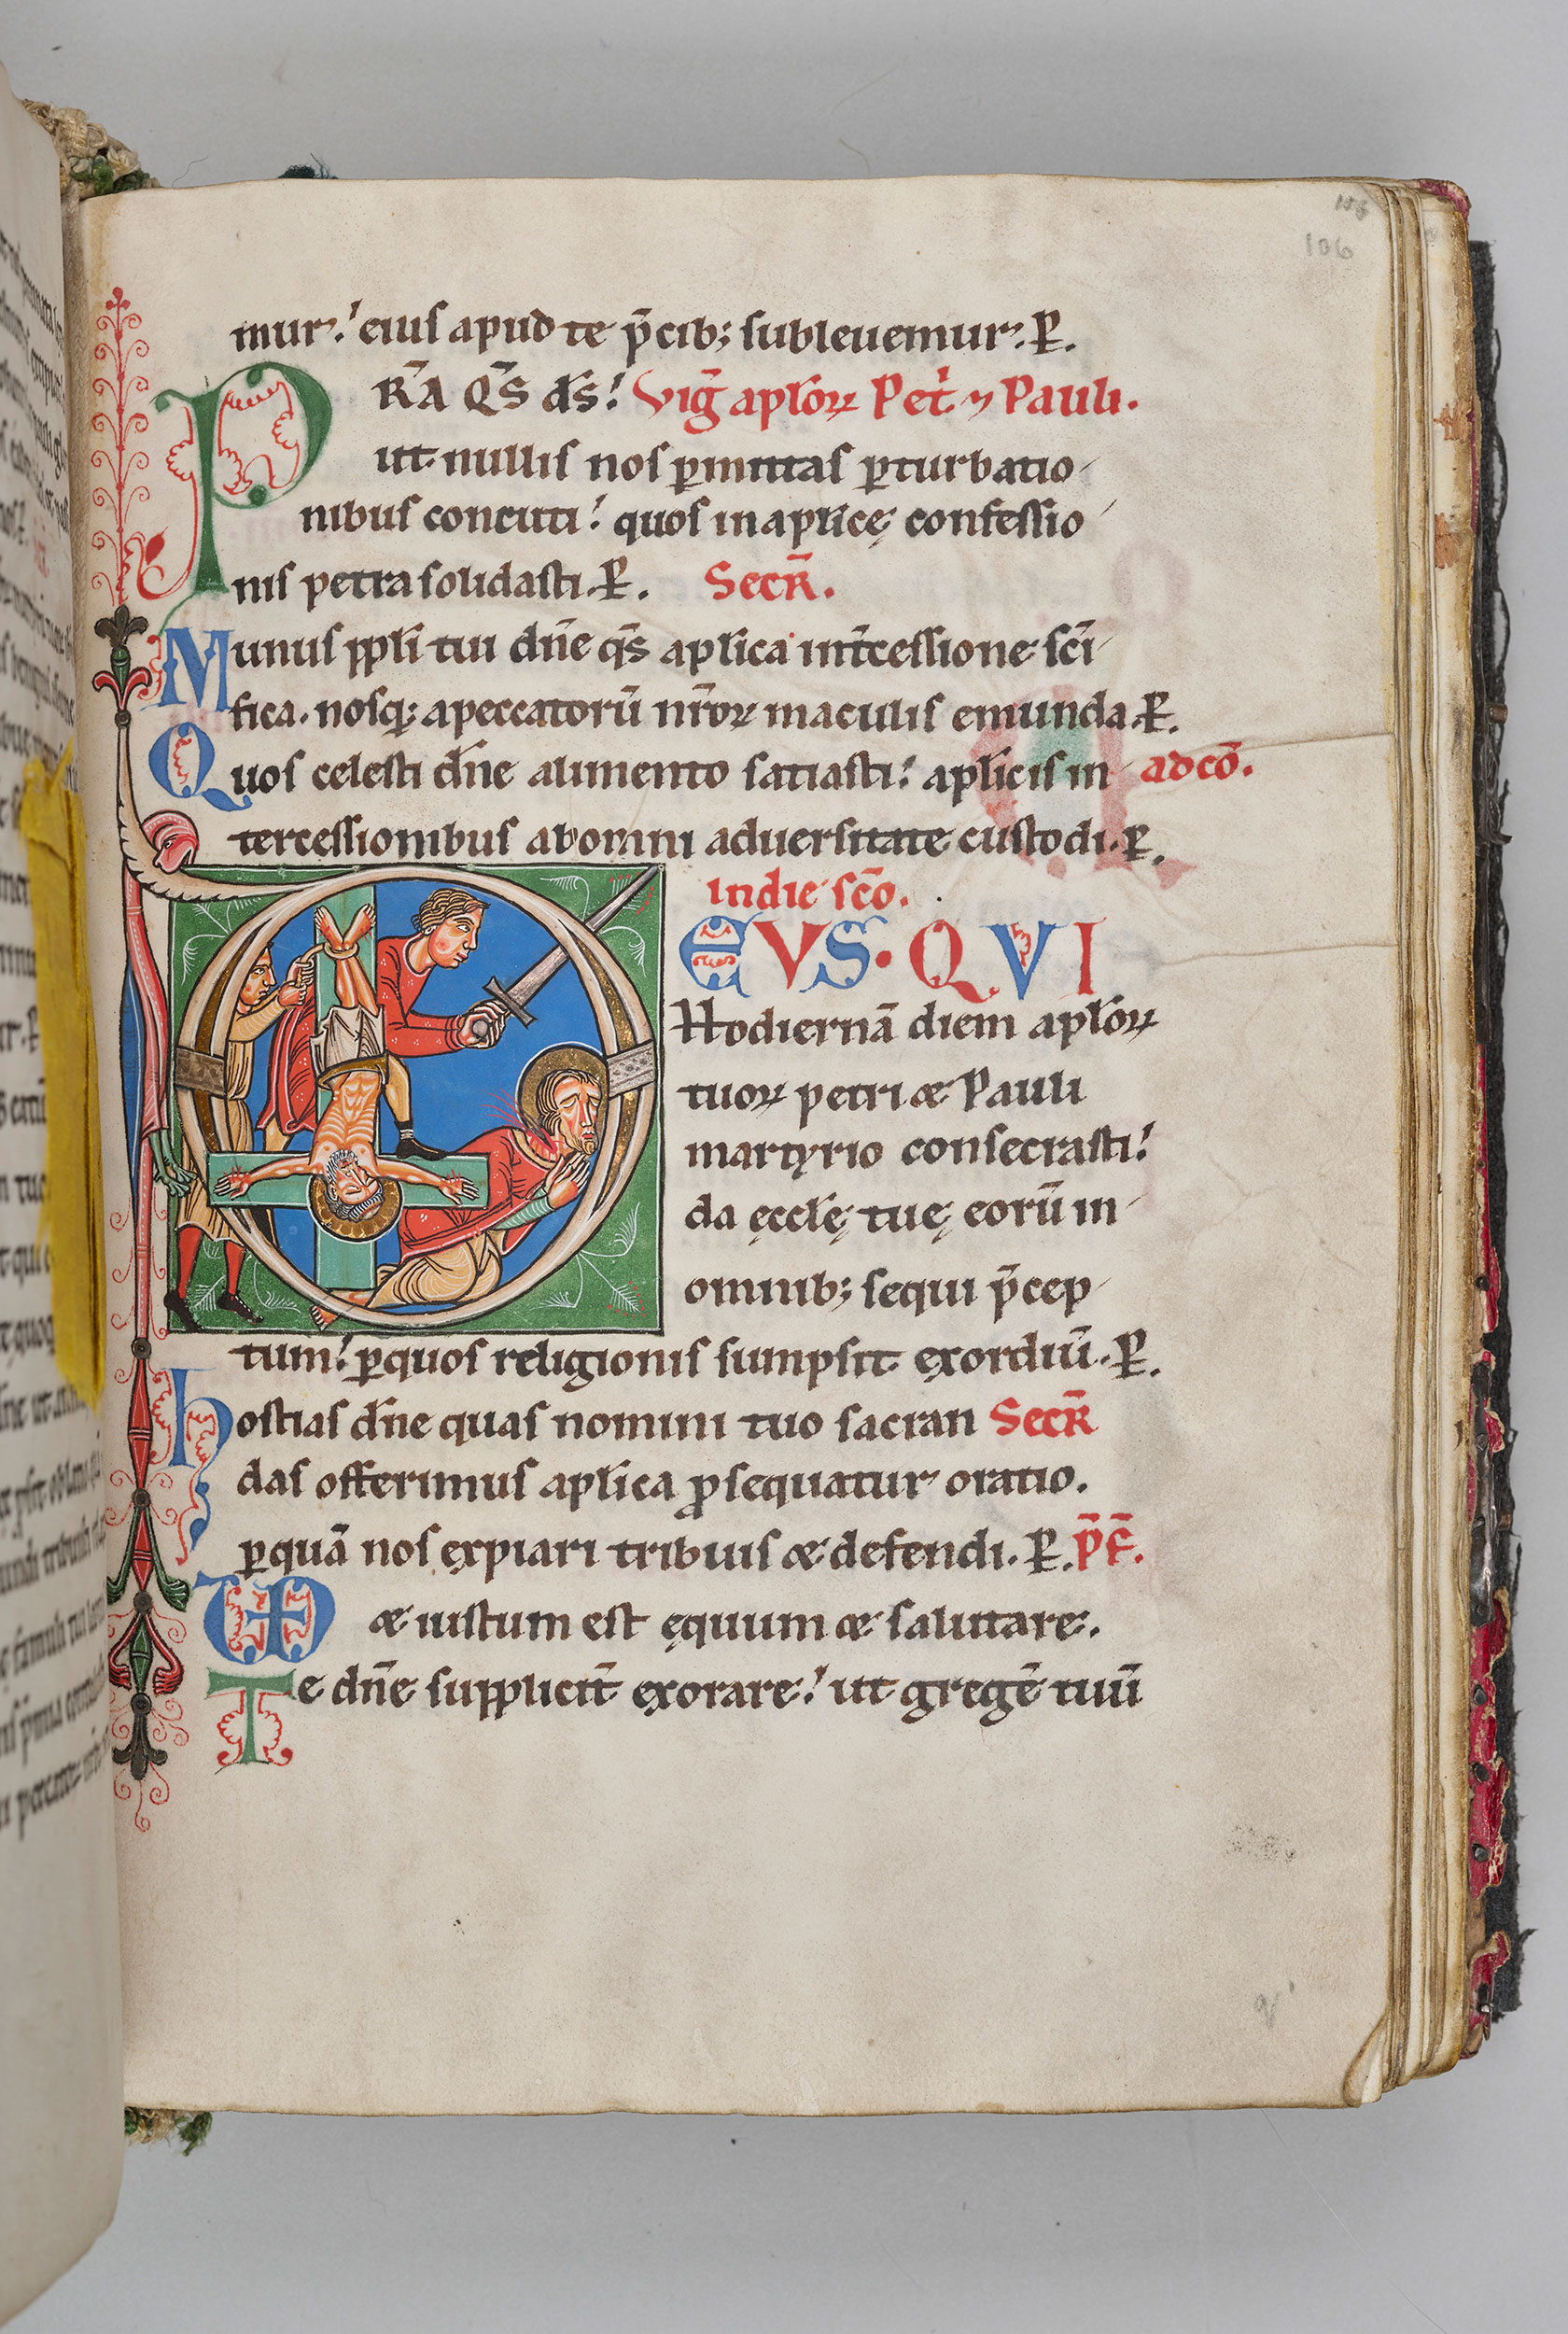 106
106
mur. eius apud te p̄cib; subleuemur. P̲.
PR̄A Q̄S d̄s. Viḡ aplōꝝ Pet̄. ⁊ Pauli.
ut nullis nos ꝑmittas ꝑturbatio
nibus concuti. quos in aplicę confessio
nis petra solidasti. P̲. Secr̄.
Munus ppli tui dn̄e q̄s aplica int̄cessione sc̄i
fica. nosq; a peccatorū nr̄oꝝ maculis emunda. P̲.
Quos celesti dn̄e alimento satiasti. aplicis in ad cō.
tercessionibus ab omni aduersitate custodi. P̲.
In die sc̄o.
EVS · QVI
Hodiernā diem aplōꝝ
tuoꝝ petri & Pauli
martyrio consecrasti.
da ęcclę tuę eorū in
omnib; sequi p̄cep
tum. ꝑ quos religionis sumpsit exordiū. P̲.
hostias dn̄e quas nomini tuo sacran Secr̄
das offerimus aplica ꝓsequatur oratio.
ꝑ quā nos expiari tribuis & defendi. P̲. P̄F̄.
VD & iustum est ęquum & salutare.
Te dn̄e supplicit̄ exorare. ut gregē tuū